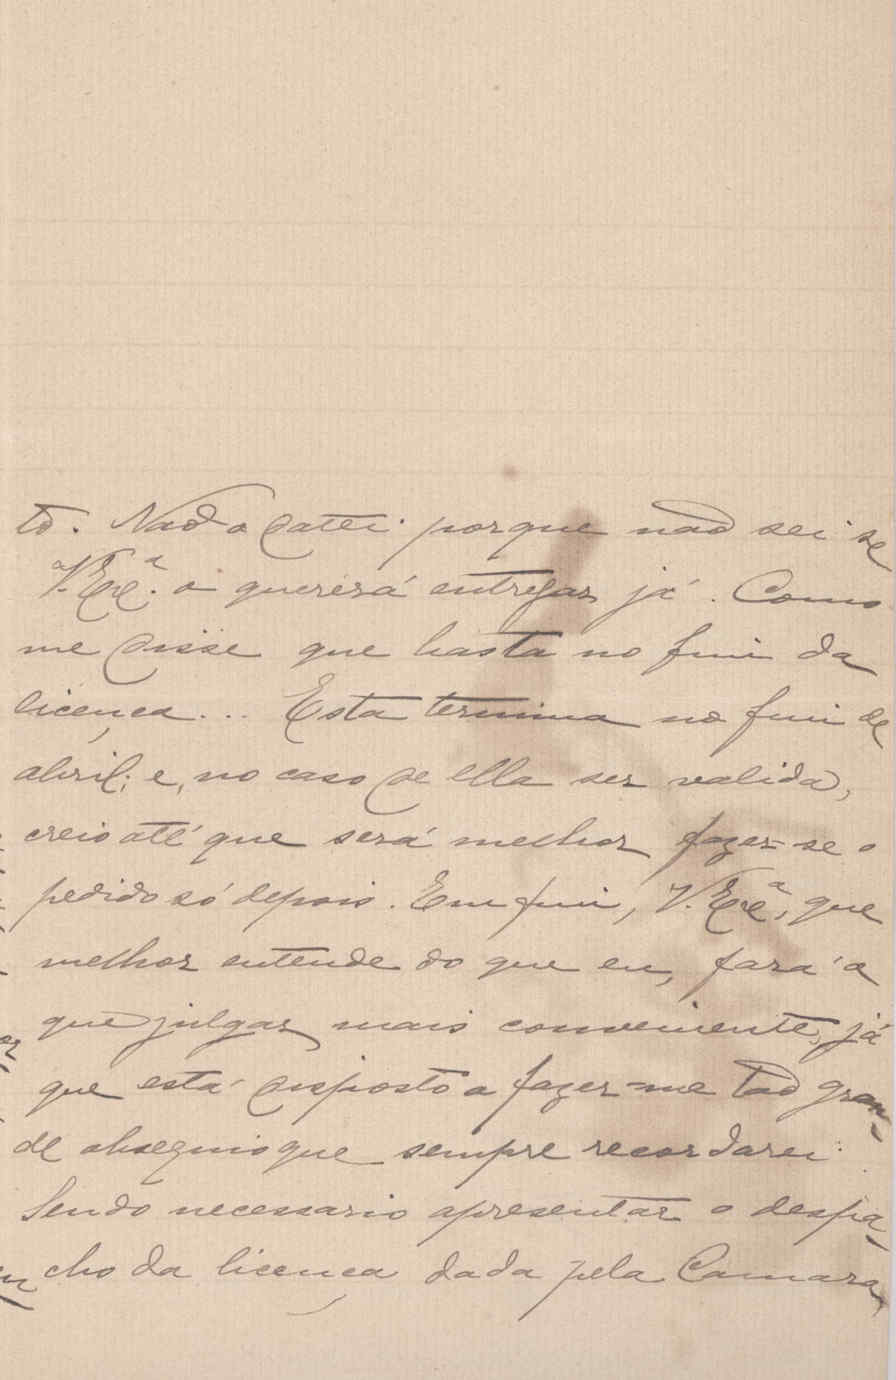 to. Não o datei porque não sei se
V. Exª. o quererá entregar já. Como
me disse que basta no fim da
licença... Esta termina no fim de
abril; e, no caso de ella ser valida,
creio até que será melhor fazer-se o
pedido só depois. Em fim, V. Exª, que
melhor entende do que eu, fará o
que julgar mais conveniente, já
que está disposto a fazer-me tão gran-
de obsequio que sempre recordarei.
Sendo necessario apresentar o despa-
cho da licença dada pela Camara